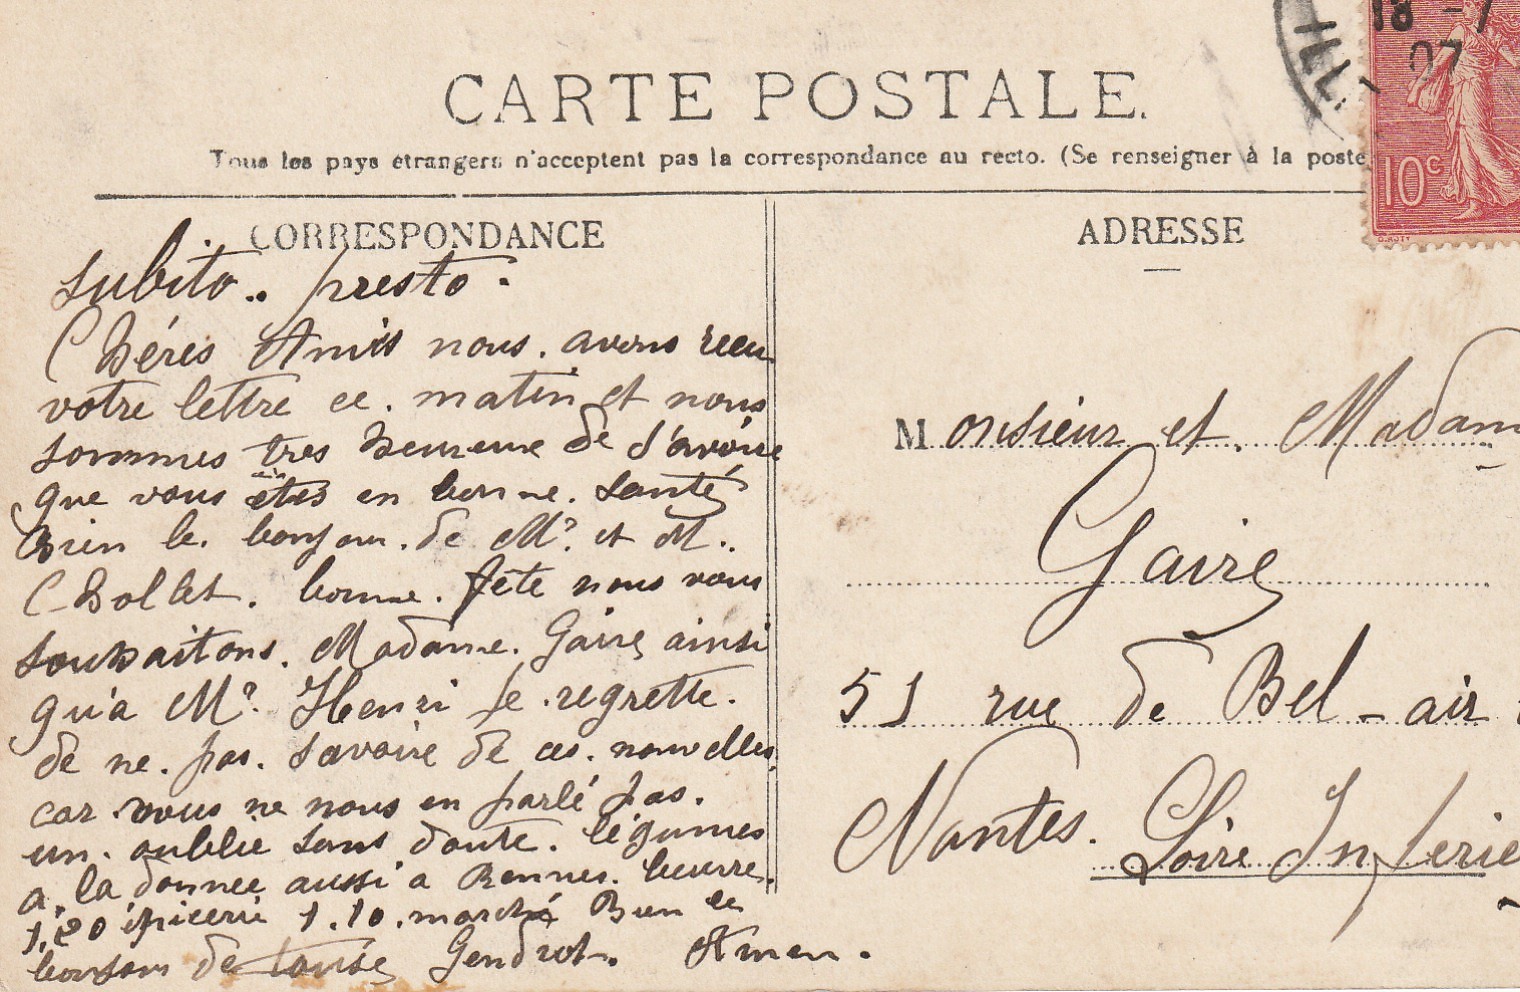 18 - 7
07
ILL
CARTE POSTALE.
Tous les pays étrangers n'acceptent pas la correspondance au recto. (Se renseigner à la poste
10c
CORRESPONDANCE
subito.. presto.
Chéres Amis nous. avons reçu
votre lettre ce. matin et nous
sommes tres heureuse de s'avoire
que vous êtes en bonne. santé
Bien le. bonjour. de Mr. et M..
Chollet. bonne. fête nous vous
souhaitons. Madame. Gaire ainsi
qu'a Mr. Henri je regrette.
de ne. pas. savoire de ces. nouvelles
car vous ne nous en parlé pas.
un. oublie sans doute. légumes
a. la donnee aussi a Rennes. beurre.
1,20 épicerie 1.10. marché Bien le
bonjour de Gendrot. Amen.
ADRESSE
Monsieur et. Madam
Gaire
51 rue de Bel-air
Nantes. Loire Inferie